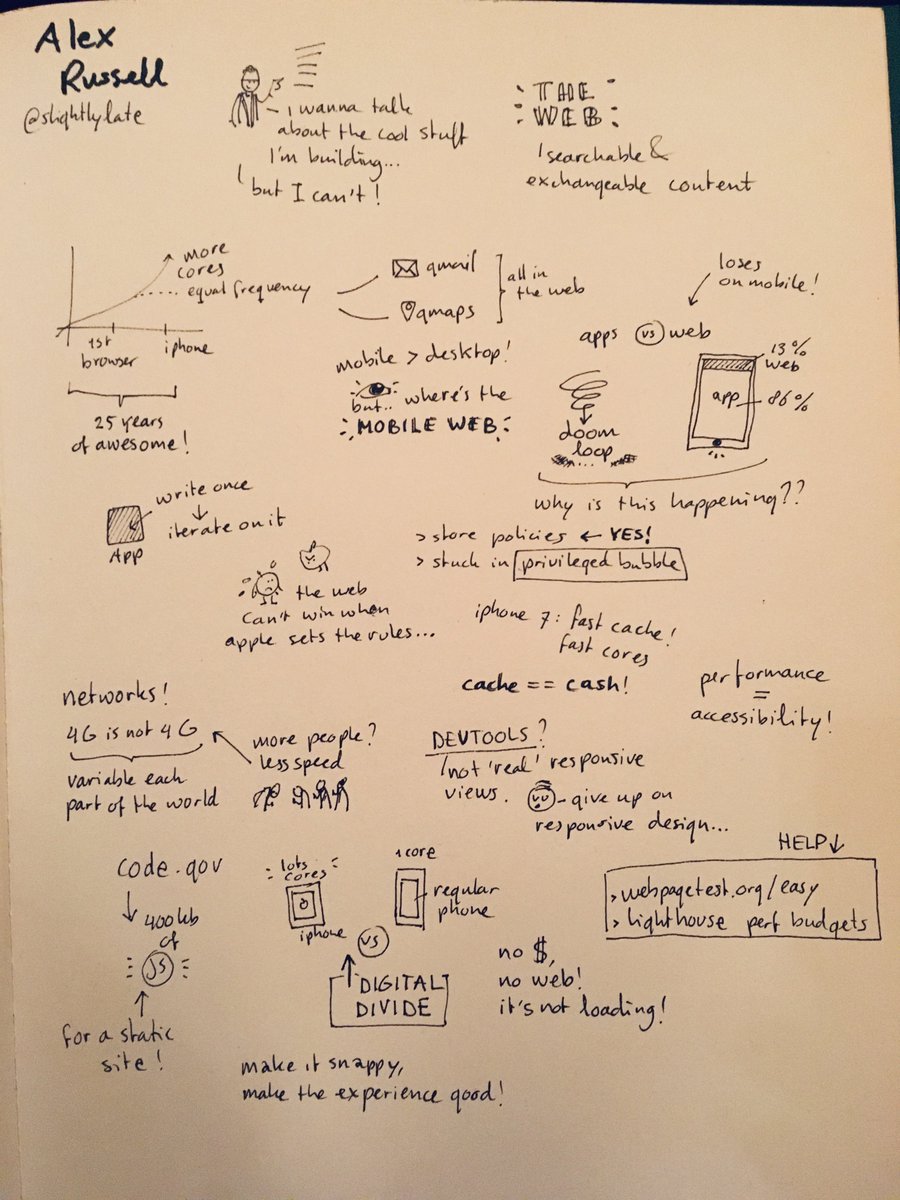 Alex
Russell
@slightlylate
I wanna talk
about the cool stuff
I'm building...
but I can't!
THE
WEB
searchable &
exchangeable content
more
cores
equal frequency
1st
browser
iphone
25 years
of awesome!
gmail
gmaps
all in
the web
mobile > desktop!
but.. where's the
MOBILE WEB
loses
on mobile!
apps vs web
doom
loop
13%
web
app
86%
why is this happening??
write once
iterate on it
App
> store policies ← YES!
> stuck in privileged bubble
the web
can't win when
apple sets the rules...
iphone 7: fast cache!
fast cores
cache == cash!
performance
=
accessibility!
networks!
4G is not 4G
variable each
part of the world
more people?
less speed
DEVTOOLS?
not 'real' responsive
views.
- give up on
responsive design...
HELP ↓
> webpagetest.org/easy
> lighthouse perf budgets
code.gov
400kb
of
JS
for a static
site!
lots
cores
iphone
vs
1 core
regular
phone
DIGITAL
DIVIDE
no $,
no web!
it's not loading!
make it snappy,
make the experience good!